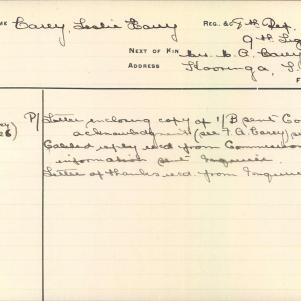 ME Carey, Leslie Harry REG. No 9th Rft.
9th Lig
NEXT OF KIN Mrs. M. A. Carey
ADDRESS Kooringa, S.
F
P/ Letter enclosing copy of 1/B sent Co
acknowledgment (see F. A. Carey)
Cabled reply recd from Commission
information sent Enquirer.
Letter of thanks recd. from Enquirer